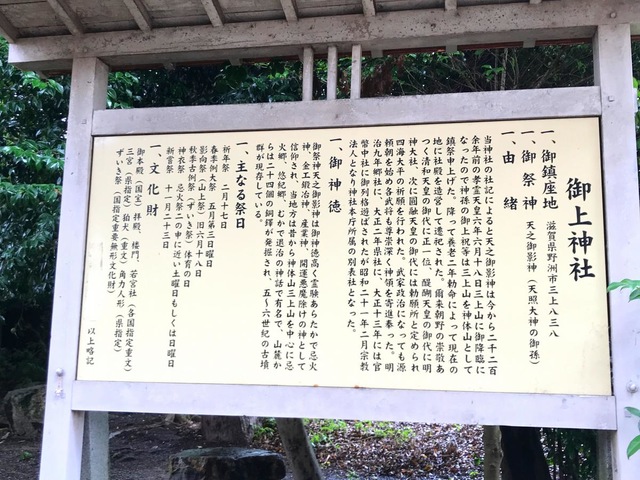 御上神社
一、御鎮座地　滋賀県野洲市三上八三八
一、御祭神　天之御影神（天照大神の御孫）
一、由緒
当神社の社記によると天之御影神は今から二千二百
余年前の孝霊天皇六年六月十八日三上山に御降臨に
なったので神孫の御上祝等は三上山を神体山として
鎮祭申上げた。降って養老二年勅命によって現在の
地に社殿を造営して遷祀された。爾来朝野の崇敬あ
つく清和天皇の御代に正一位、醍醐天皇の御代に明
神大社、次に圓融天皇の御代には勅願所と定められ
四海太平の祈願を行われた。武家政治になっても源
頼朝を始める各武将も尊崇深く神領を寄進奉った。明
治九年郷社に、大正二年県社に、大正十三年には官
幣中社に御列格遊ばされたが昭和二十一年二月宗教
法人となり神社本庁所属の別表社となった。
一、御神徳
御祭神天之御影神は御神徳高く霊験あらたかで忌火
神、金工鍛冶神、産業神、開運悪魔除けの神として
信仰され、当地方は昔から神体山三上山を中心に忌
火郷、悠紀郷、むかで退治の神話で有名で、山麓か
らは二十四個の銅鐸が発掘され、五〜六世紀の古墳
群が現存している。
一、主なる祭日
祈年祭　二月十七日
春季例大祭　五月第三日曜日
影向祭（山上祭）旧六月十八日
秋季古例祭（ずいき祭）体育の日
神衣祭　忌火祭 二の申に近い土曜日もしくは日曜日
新嘗祭　十一月二十三日
一、文化財
御本殿（国宝）拝殿、楼門、若宮社（各国指定重文）
三宮（県指定）狛犬（重文）角力人形（県指定）
ずいき祭（国指定重要無形文化財）
以上略記